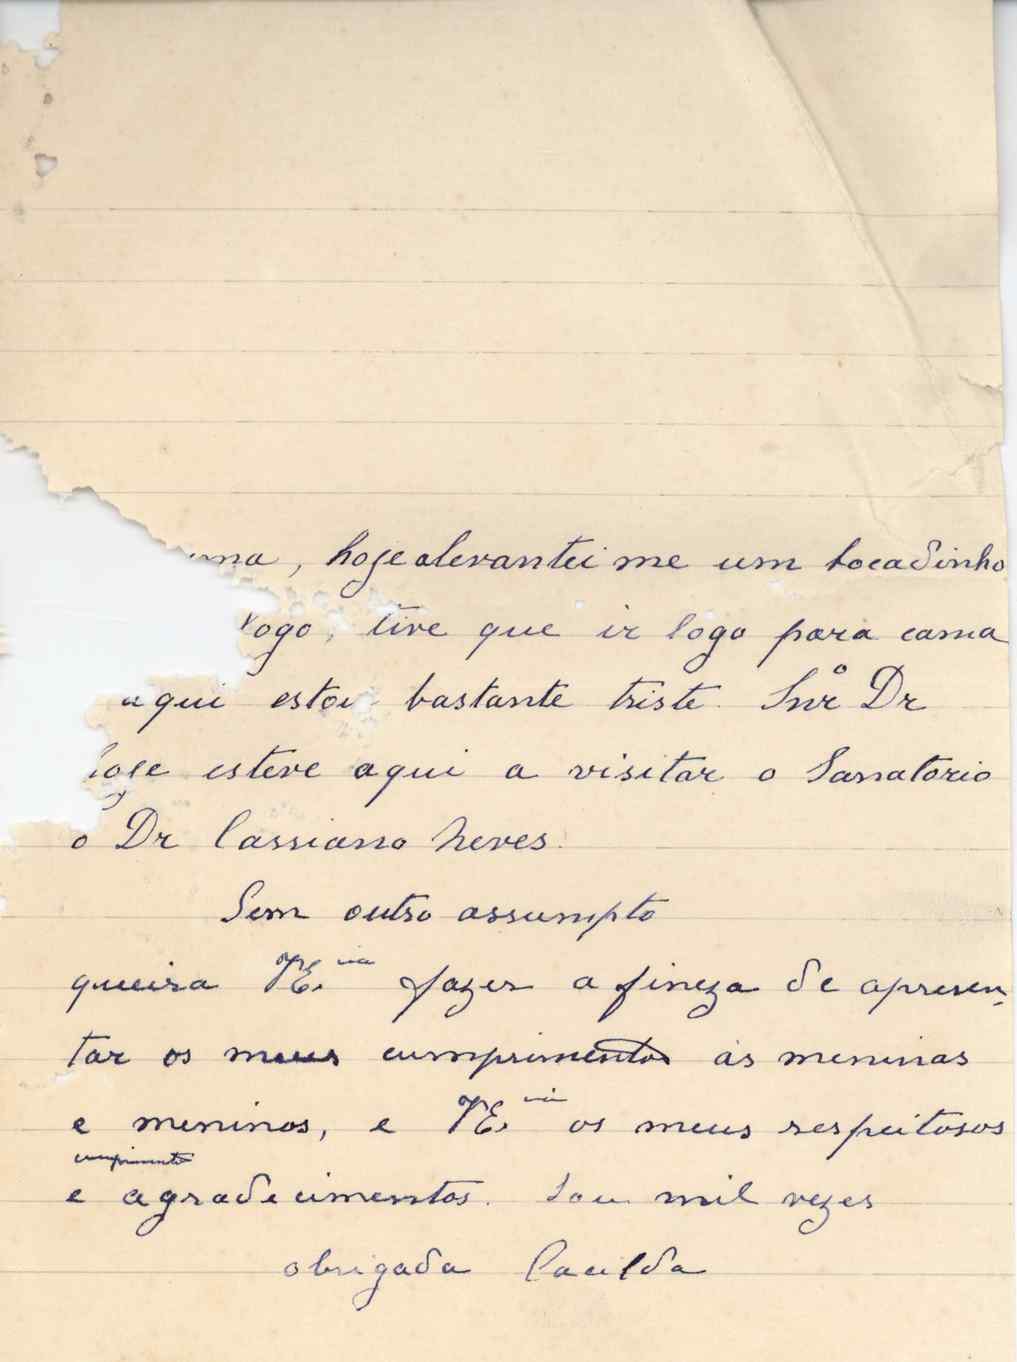 uma, hoje alevantei me um bocadinho
logo, tive que ir logo para cama
aqui estou bastante triste. Snrº Dr
hoje esteve aqui a visitar o Sanatorio
o Dr Cassiano Neves.
Sem outro assumpto
queira VE.cia fazer a fineza de apresen,
tar os meus cumprimentos ás meninas
e meninos, e VE.cia os meus respeitosos
cumprimentos
e agradecimentos. Sou mil vezes
obrigada Cacilda